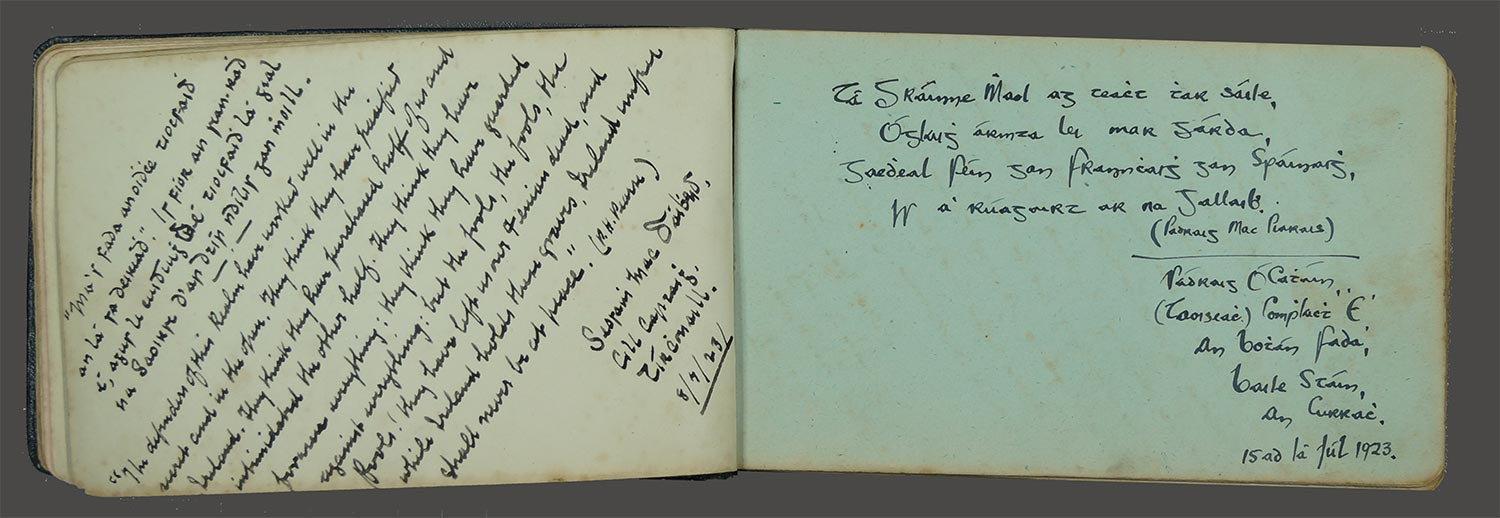 "Má's fada an oidċe tiocfaiḋ
an lá fa ḋeireaḋ." Is fíor an
é, agus le tiocfaiḋ lá geal
na Saoirse d'ár dtír ndílis gan ṁoill.
"The defenders of this Realm have worked well in the
secret and in the open. They think they have pacified
Ireland. They think they have purchased half of us and
intimidated the other half. They think they have
foreseen everything: they think they have guarded
against everything: but the fools, the fools, the
Fools! they have left us our Fenian dead, and
while Ireland holds these graves, Ireland unfree
shall never be at peace." (P.H. Pearse)
Seosaiṁ Mac
Cill
Tír Conaill.
8/7/23/
Tá Gráinne Ṁaol ag teaċt tar sáile,
Óglaiġ ármṫa léi mar gárda,
Gaeḋeal féin gan Franncaiġ gan Spáinniġ,
Is a' rúagairt ar na Gallaiḃ.
(Pádraig Mac Piarais)
Pádraig Ó Catáin,
(Taoiseaċ.) Compluċt "C"
An Boṫán Fada,
Baile Stáin,
An Currać.
15aḋ lá Júl 1923.